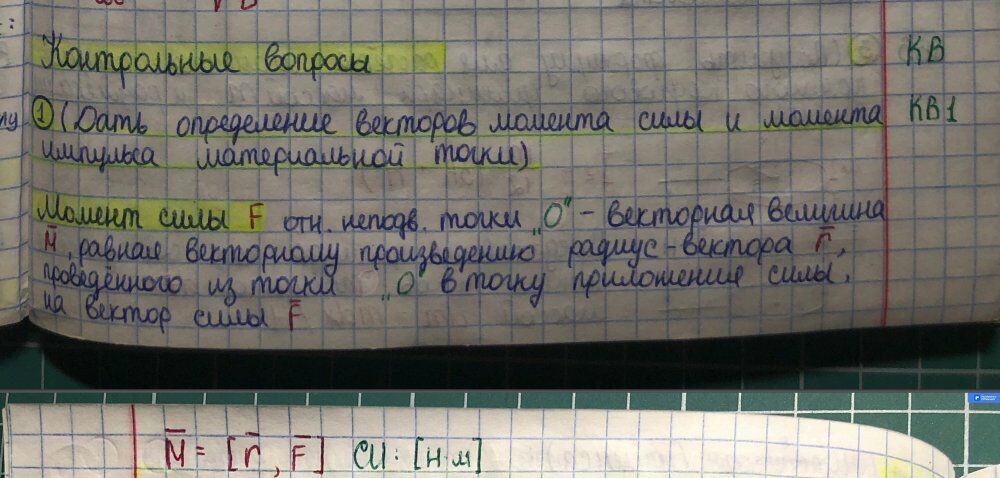 Контрольные вопросы
КВ
① (Дать определение векторов момента силы и момента
КВ1
импульса материальной точки)
Момент силы F отн. неподв. точки „О" - векторная величина
M̅, равная векторному произведению радиус-вектора r̅,
проведённого из точки „О" в точку приложения силы,
на вектор силы F̅
M̅ = [r̅, F̅] СИ: [Н·м]